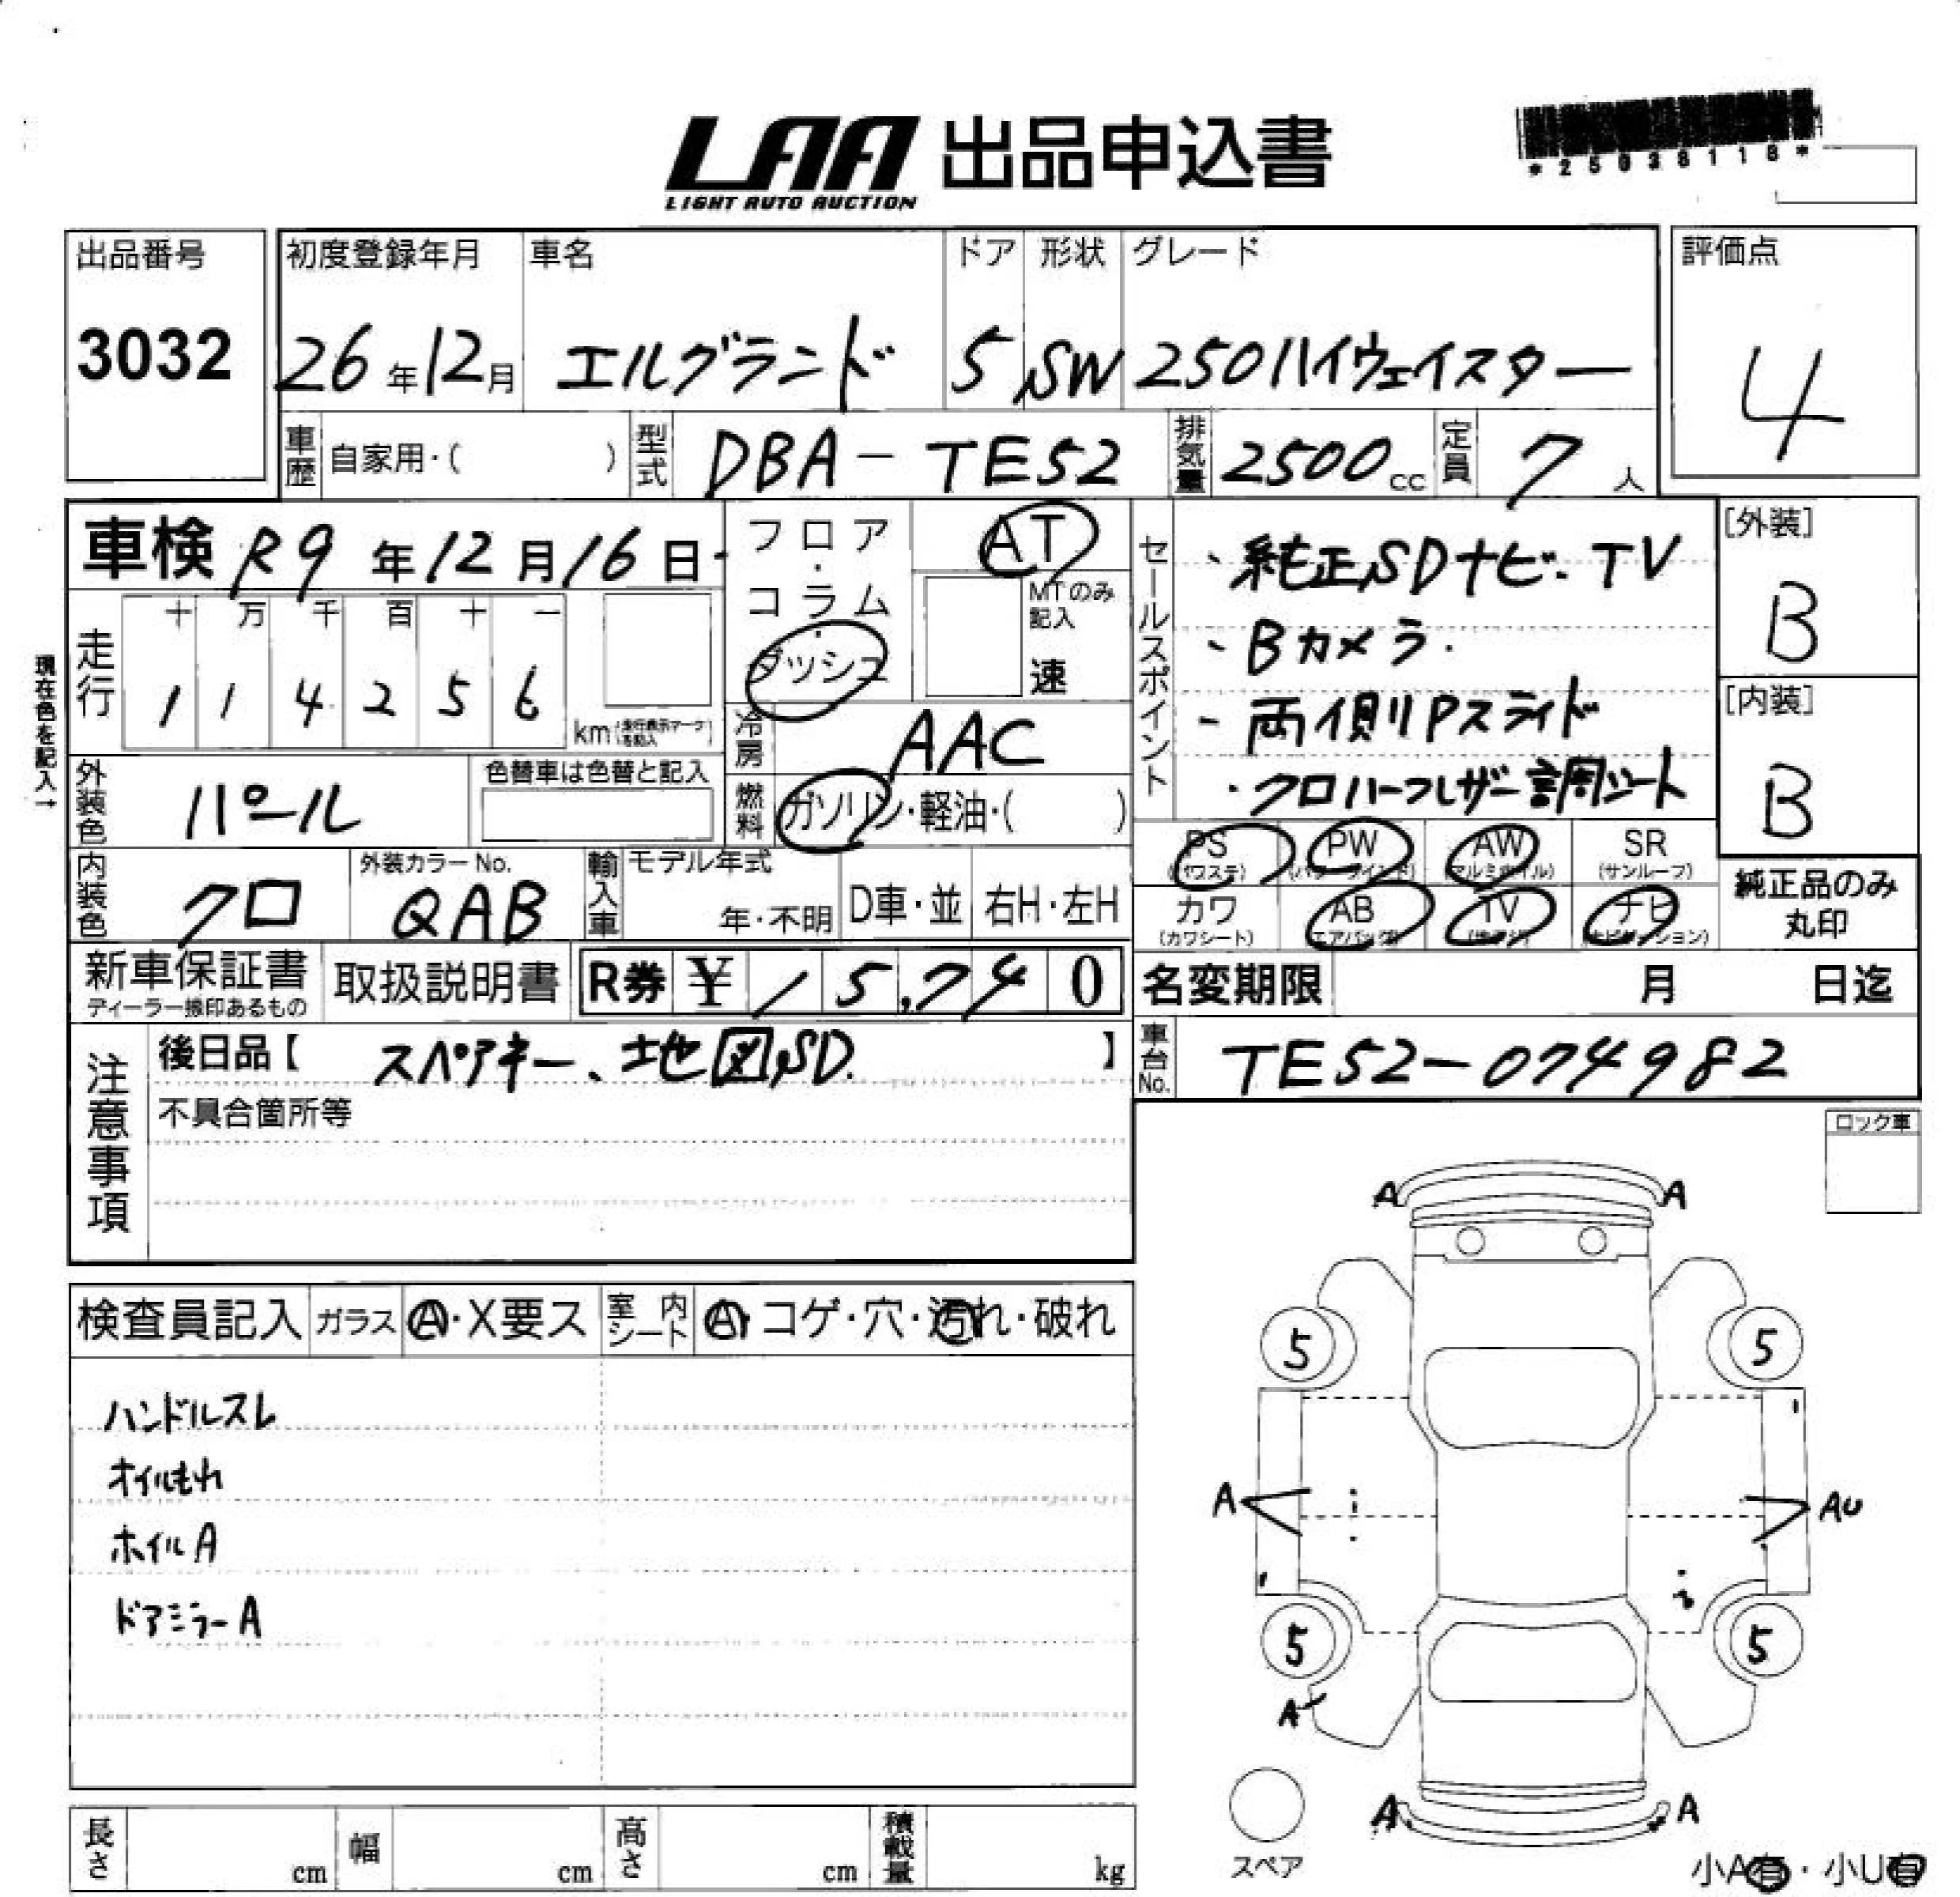 LAA 出品申込書
LIGHT AUTO AUCTION
*25038118*
出品番号 初度登録年月 車名 ドア 形状 グレード 評価点
3032 26年12月 エルグランド 5 SW 250ハイウェイスター 4
車歴 自家用・( ) 型式 DBA-TE52 排気量 2500cc 定員 7人
車検 R9年12月16日
フロア・コラム・ダッシュ AT
MTのみ記入 速
現在色を記入→
走行 十 万 千 百 十 一
1 1 4 2 5 6 km
冷房 AAC
外装色 パール 色替車は色替と記入
燃料 ガソリン・軽油・( )
内装色 クロ 外装カラーNo. QAB
輸入車 モデル年式 年・不明 D車・並 右H・左H
セールスポイント
・純正SDナビ・TV
・Bカメラ・
・両側Pスライド
・クロハーフレザー調シート
[外装]
B
[内装]
B
PS (パワステ) PW (パワーウインド) AW (アルミホイル) SR (サンルーフ)
カワ (カワシート) AB (エアバッグ) TV ナビ (ナビゲーション)
純正品のみ
丸印
新車保証書 ディーラー捺印あるもの 取扱説明書 R券 ¥ 15,740
名変期限 月 日迄
車台No. TE52-074982
注意事項
後日品【 スペアキー、地図SD. 】
不具合箇所等
ロック車
検査員記入 ガラス A・X要ス 室内シート A・コゲ・穴・汚れ・破れ
ハンドルスレ
オイルもれ
ホイルA
ドアミラーA
A A
5 5
A AU
5 5
A
A A
スペア
長さ cm 幅 cm 高さ cm 積載量 kg
小A有・小U有